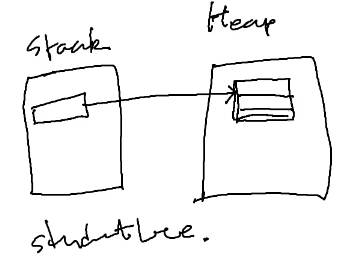 Stack
Heap
student lee.